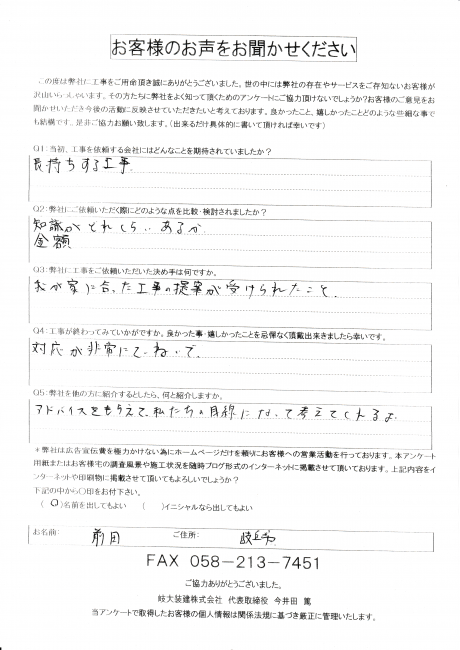 お客様のお声をお聞かせください
この度は弊社に工事をご用命頂き誠にありがとうございました。世の中には弊社の存在やサービスをご存知ないお客様が
沢山いらっしゃいます。その方たちに弊社をよく知って頂くためのアンケートにご協力頂けないでしょうか?お客様のご意見をお
聞かせいただき今後の活動に反映させていきたいと考えております。良かったこと、嬉しかったことどのような些細な事で
も結構です。是非ご協力お願い致します。(出来るだけ具体的に書いて頂ければ幸いです)
Q1:当初、工事を依頼する会社にはどんなことを期待されていましたか?
長持ちする工事.
Q2:弊社にご依頼いただく際にどのような点を比較・検討されましたか?
知識がどれくらいあるか.
金額
Q3:弊社に工事をご依頼いただいた決め手は何ですか。
我が家に合った工事の提案が受けられたこと.
Q4:工事が終わってみていかがですか。良かった事・嬉しかったことを忌憚なく頂戴出来きましたら幸いです。
対応が非常にていねいで.
Q5:弊社を他の方に紹介するとしたら、何と紹介しますか。
アドバイスをもらえて、私たちの目線になって考えてくれるよ.
*弊社は広告宣伝費を極力かけない為にホームページだけを頼りにお客様への営業活動を行っております。本アンケート
用紙またはお客様宅の調査風景や施工状況を随時ブログ形式のインターネットに掲載させて頂いております。上記内容をイ
ンターネットや印刷物に掲載させて頂いてもよろしいでしょうか?
下記の中から〇印をお付下さい。
(〇)名前を出してもよい ( )イニシャルなら出してもよい
お名前: 前田 ご住所: 岐阜県
FAX 058-213-7451
ご協力ありがとうございました。
岐大装建株式会社 代表取締役 今井田 篤
当アンケートで取得したお客様の個人情報は関係法規に基づき厳正に管理いたします。